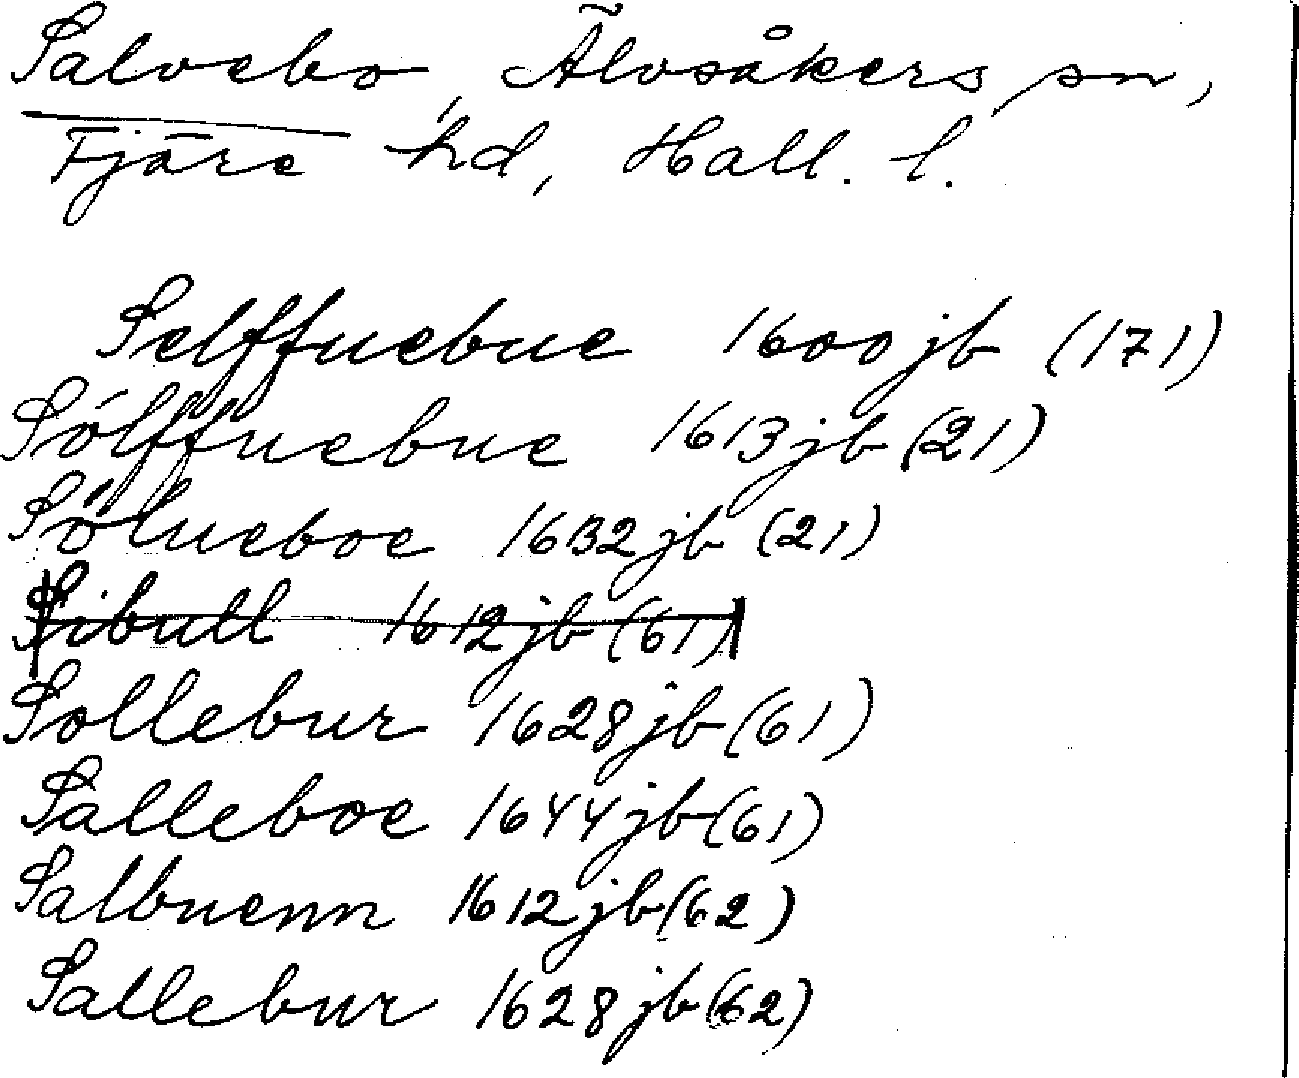 Salvebo, Älvsåkers sn,
Fjäre hd, Hall. l.
Selffuebue 1600 jb (171)
Sólffuebue 1613 jb (21)
Sölueboe 1632 jb (21)
Sibull 1612 jb (61)
Sollebur 1628 jb (61)
Salleboe 1644 jb (61)
Salbuenn 1612 jb (62)
Sallebur 1628 jb (62)